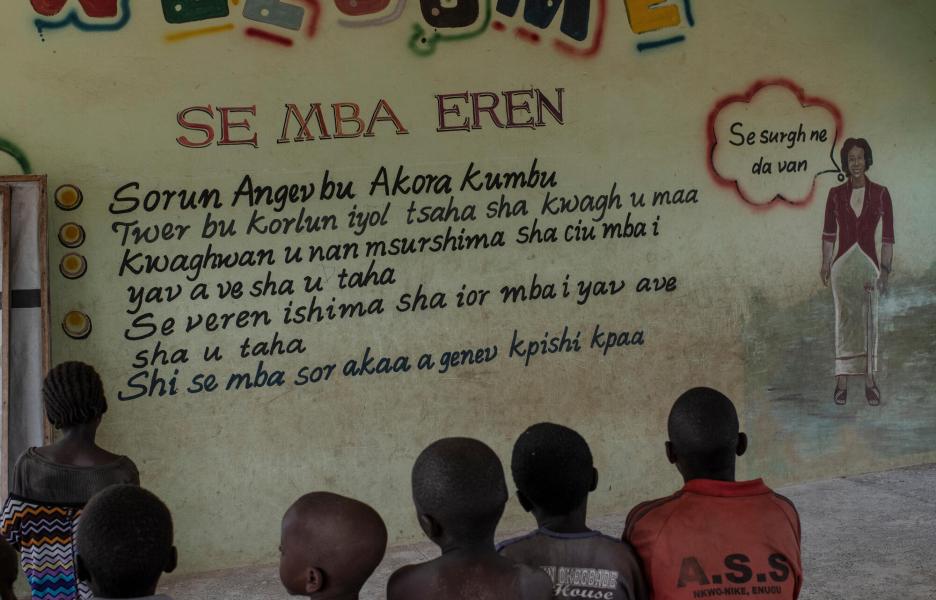 WELCOME
SE MBA EREN
Se surgh ne
da van
Sorun Angev bu Akora Kumbu
Twer bu korlun iyol tsaha sha kwagh u maa
Kwaghwan u nan msurshima sha ciu mba i
yav a ve sha u taha
Se veren ishima sha ior mba i yav ave
sha u taha
Shi se mba sor akaa a genev kpishi kpaa
House
A.S.S
NKWO-NIKE, ENUGU